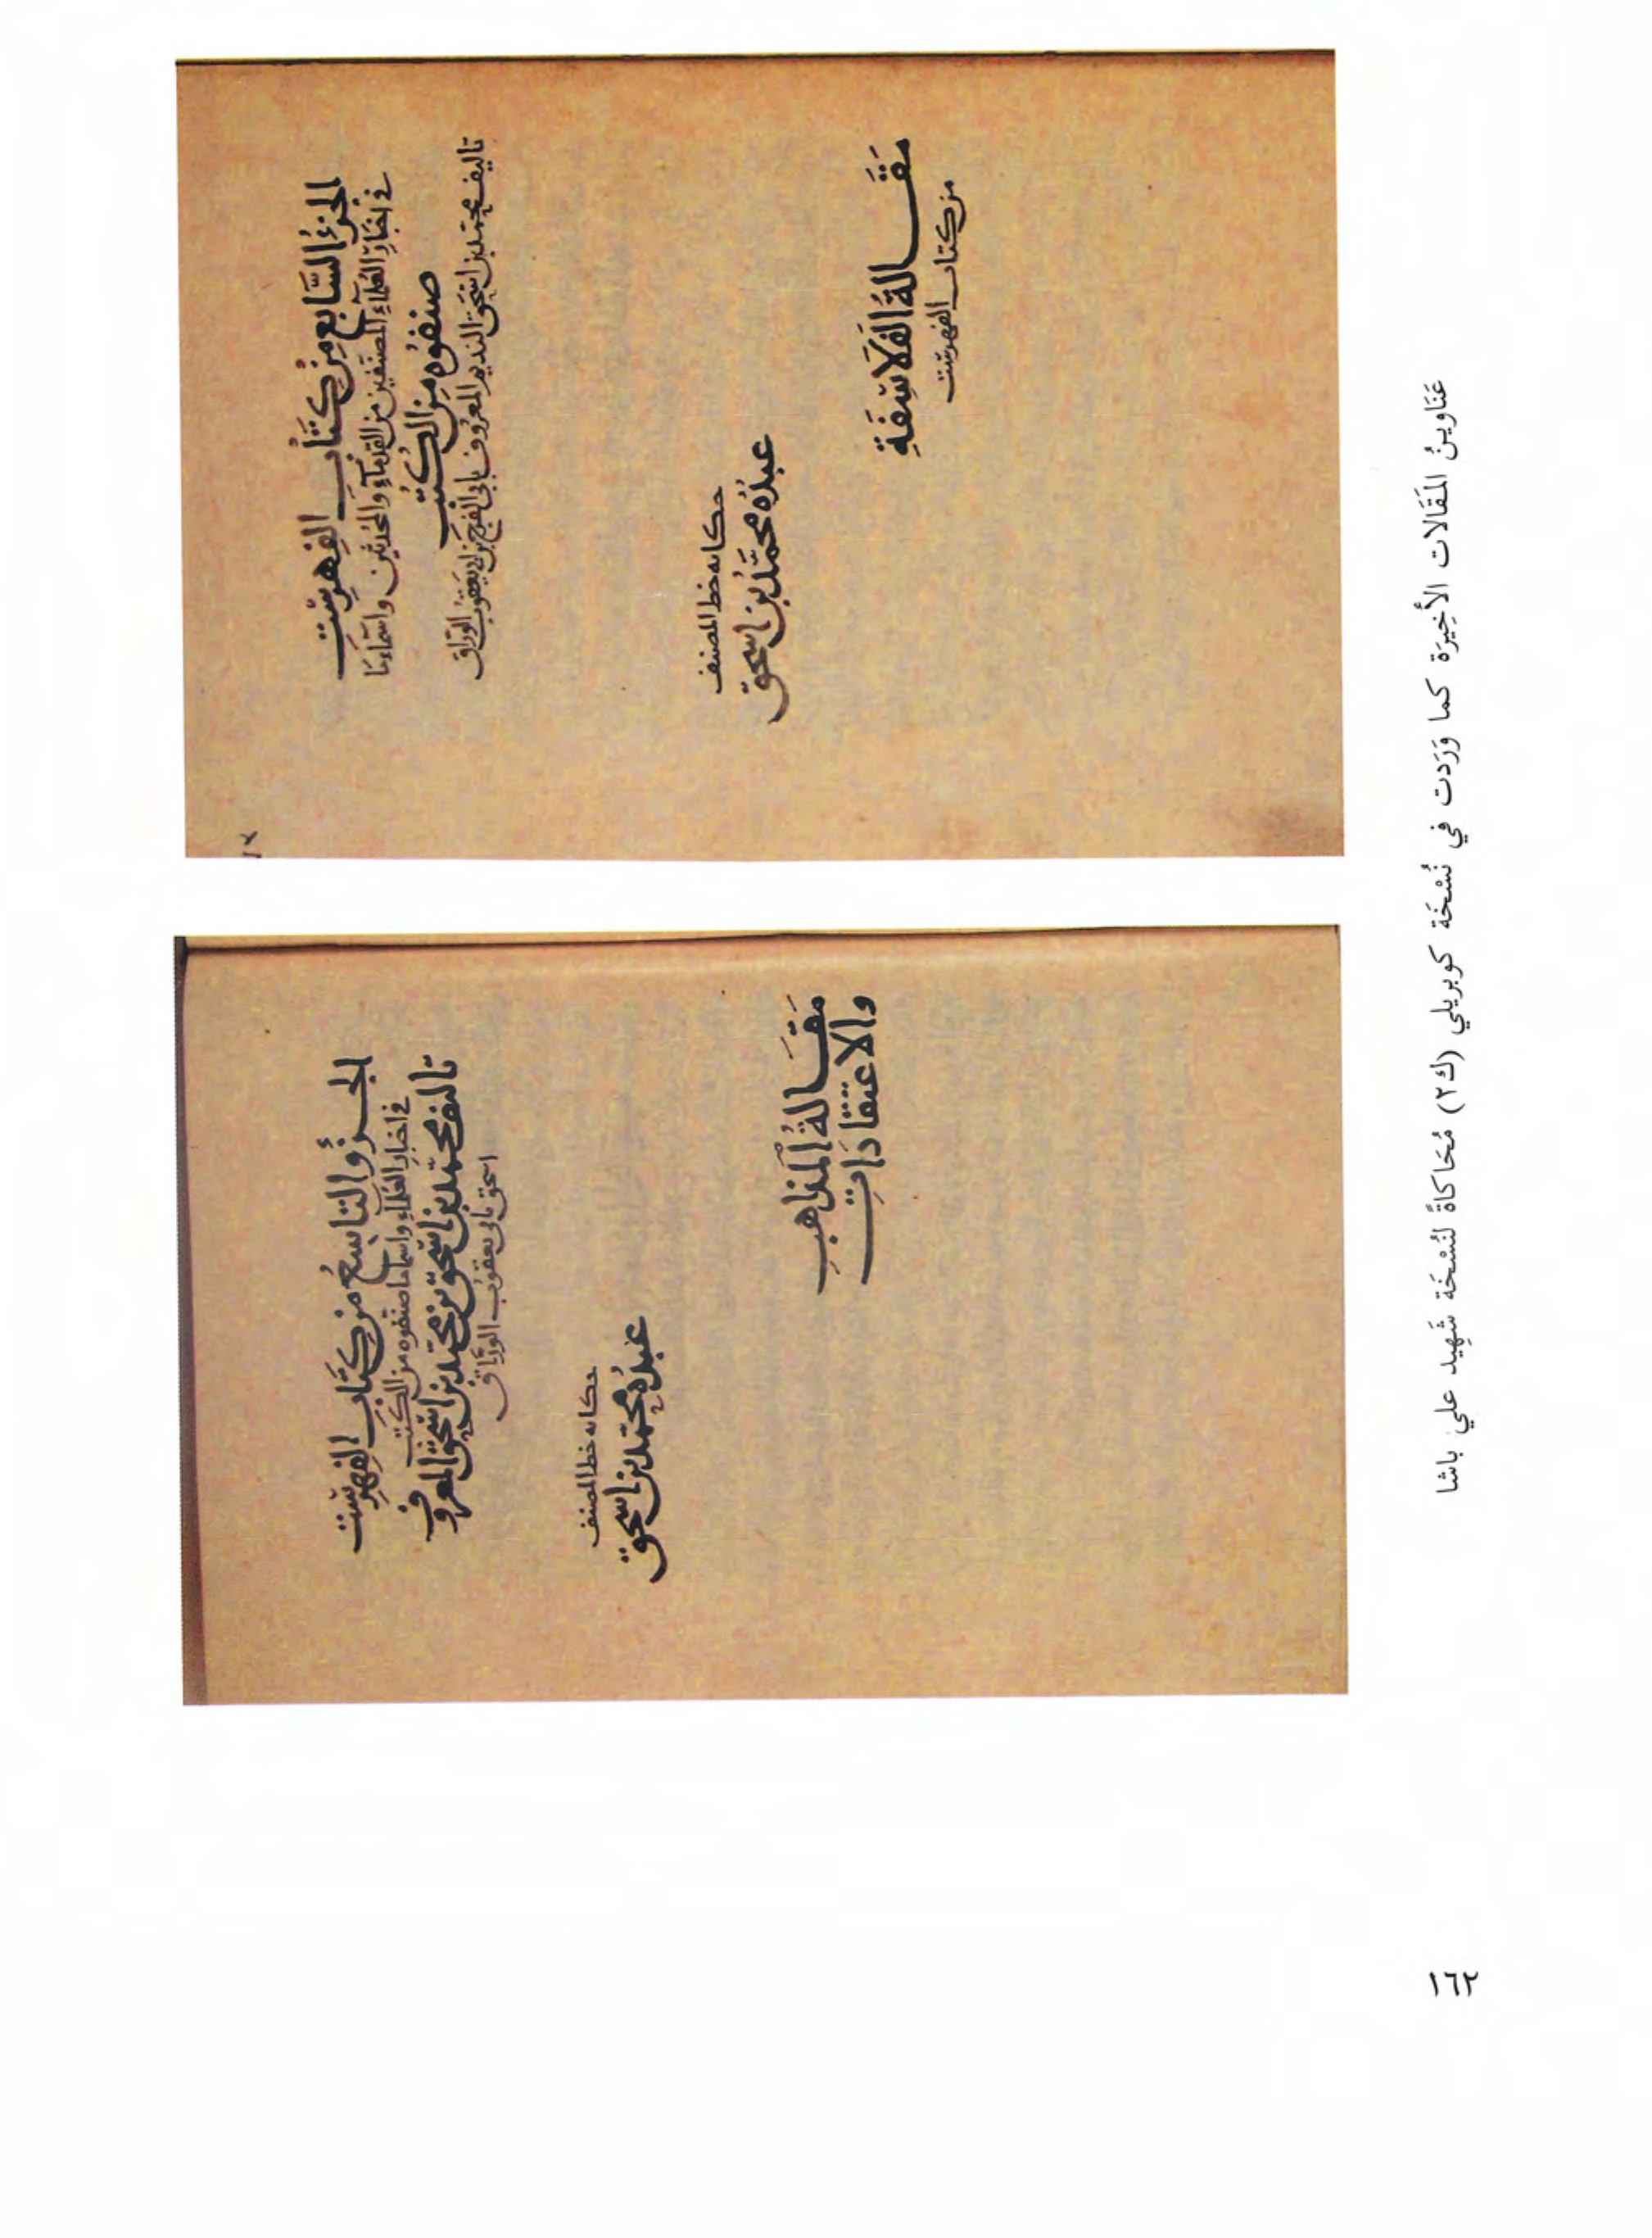 الجزءُ السَّابعُ مِنْ كتَابِ الفِهرسْتِ
في اخبَارِ العُلمآءِ المصنّفين من القدمآءِ والمحدثين واسمآءِ ما
صنفوُه مِنَ الكُتبِ
تاليف محمّد بن اسحٰق النديم المعرُوف بابى الفرج بن ابى يعقوُب الورّاق
حكايه خط المصنف
عبدُهُ محمَّد بن اسحٰق
مَقَالةُ الفَلاسِفَةِ
من كتاب الفهرست
الجزؤُ التَاسعُ مِن كتَابِ الفِهرسْت
في اخبارِ العُلماءِ واسما ما صنفوه من الكتبِ
تاليف محمّد بن اسحٰق بن محمّد بن اسحٰق المعروف
اسحق بابى يعقوب الورّاق
حكايه خط المصنف
عبدُهُ محمّد بن اسحٰق
مَقَالةُ المَذاهبِ
والاعتقادَاتِ
عَنَاوينُ المَقَالات الأَخِيرَة كما وَرَدت في نُسْخَة كوبريلي (ك٢) مُحَاكاةً لنُسْخَة شَهِيد علي باشا
١٦٢